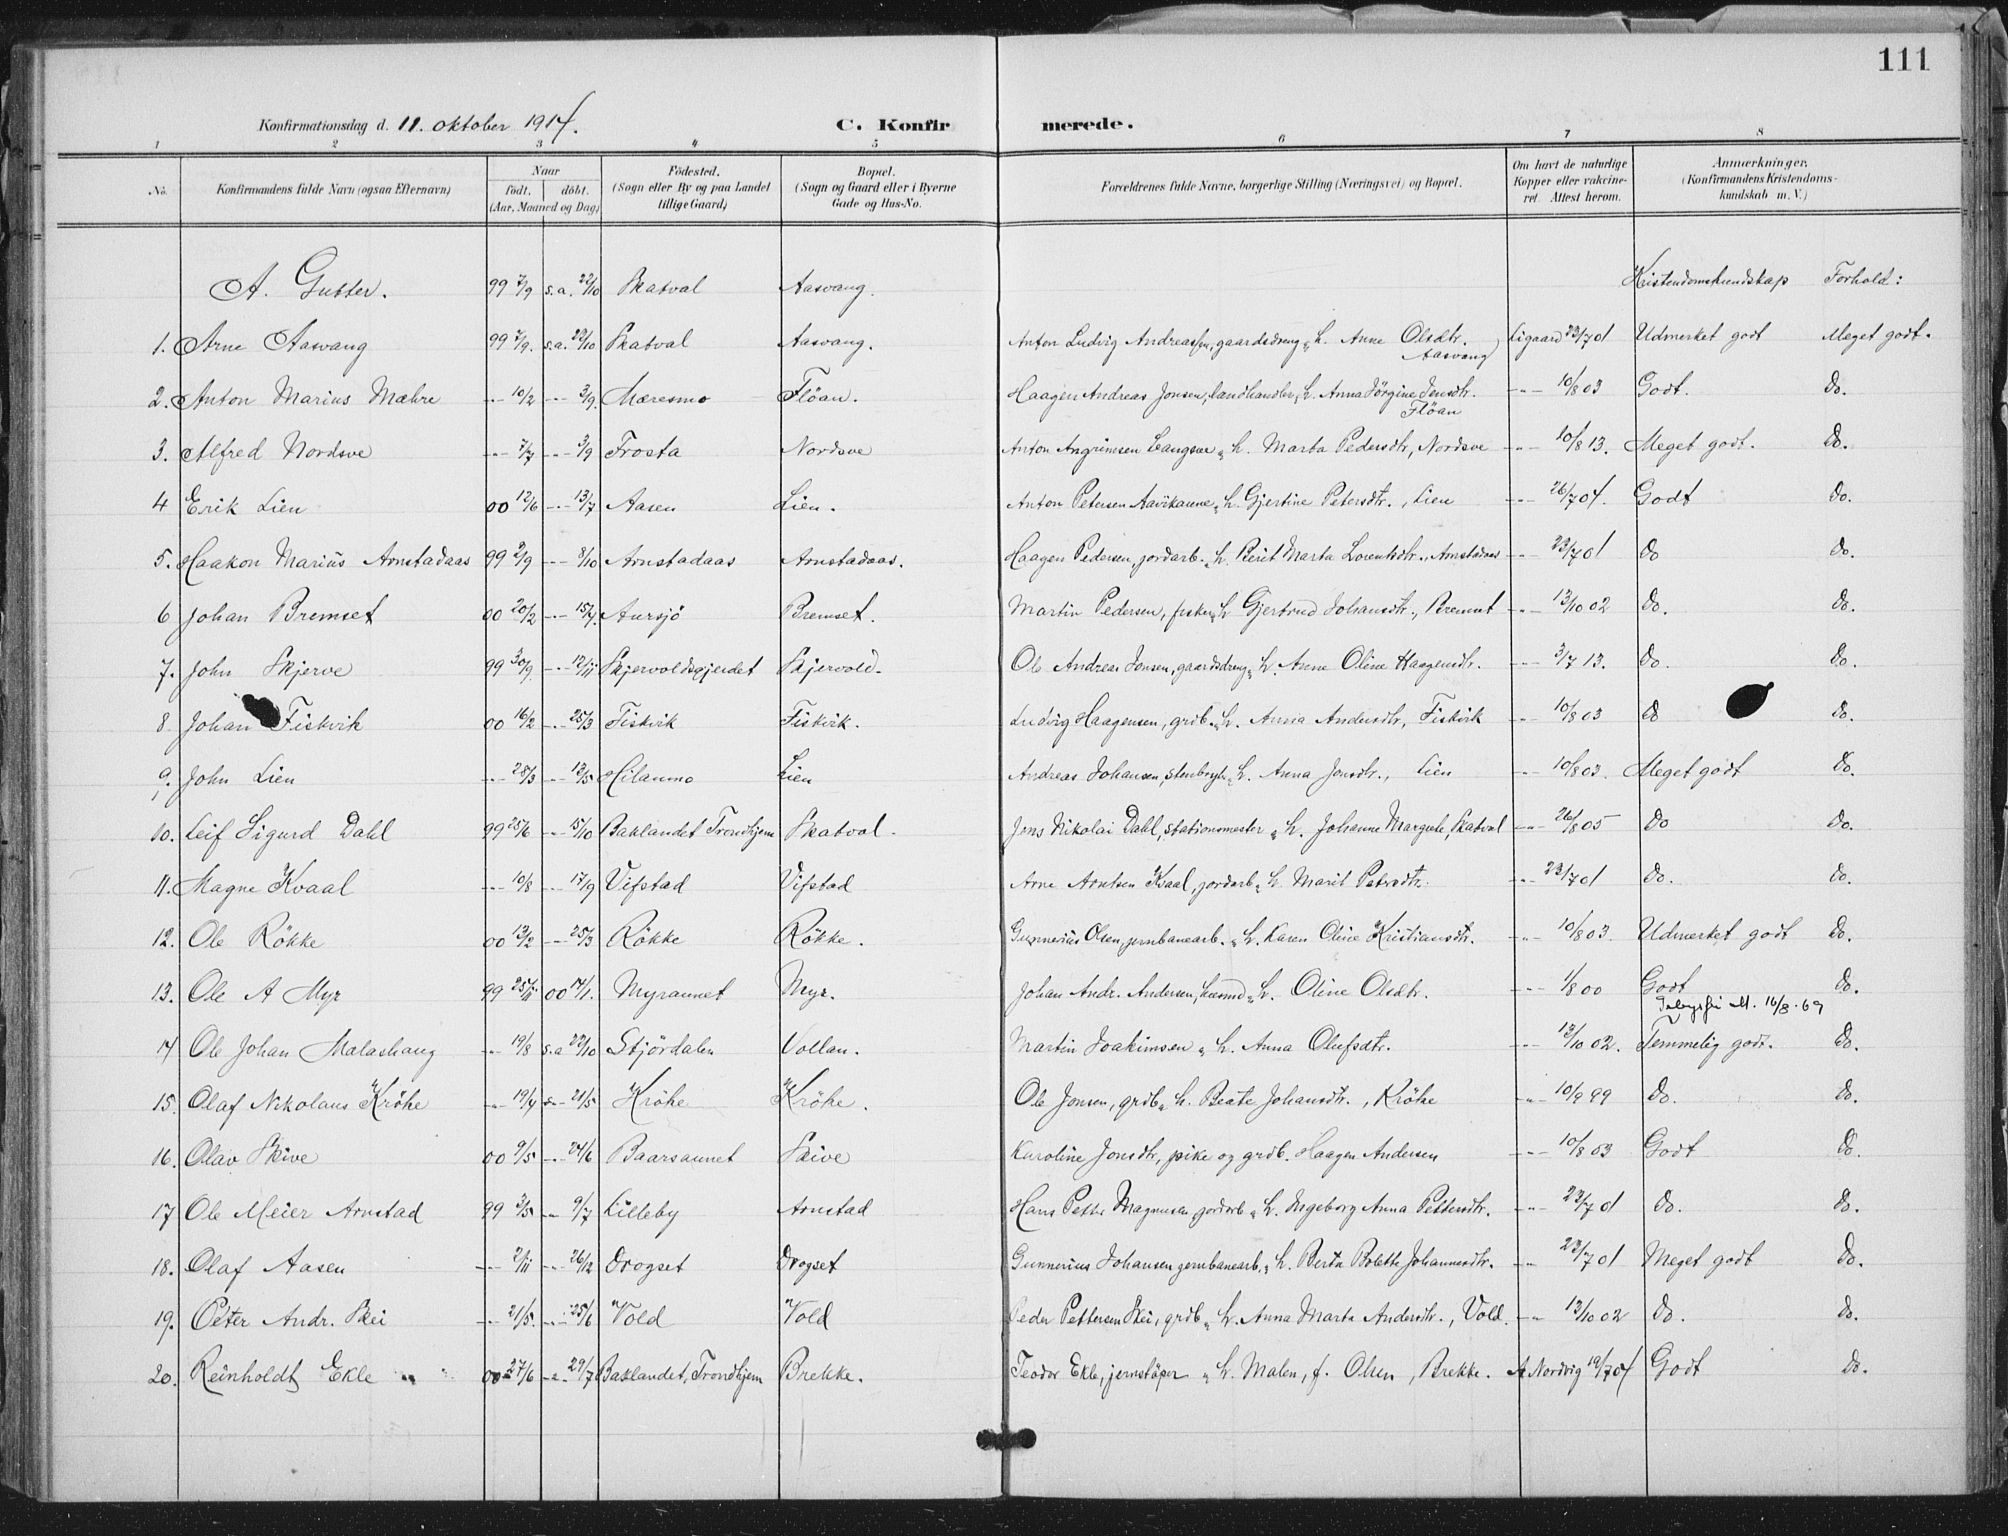 111
Konfirmationsdag d. 11. oktober 1914.
C. Konfirmerede.
1 2 3 4 5 6 7 8
No. Konfirmandens fulde Navn (ogsaa Efternavn) Naar født. døbt. (Aar, Maaned og Dag) Fødested. (Sogn eller By og paa Landet tillige Gaard) Bopæl. (Sogn og Gaard eller i Byerne Gade og Hus-No. Forældrenes fulde Navne, borgerlige Stilling (Næringsvei) og Bopæl. Om havt de naturlige Kopper eller vakcineret. Attest herom. Anmærkninger. (Konfirmandens Kristendomskundskab m. V.)
A. Gutter. 99 7/9 s.a. 22/10 Skatval Aasvang. Kristendomskundskap Forhold:
1. Arne Aasvang 99 7/9. s.a. 22/10 Skatval Aasvang. Anton Ludvig Andreassen, gaardsdreng „ h. Anne Olsdtr. Aasvang Ligaard 23/7 01 Udmerket godt Meget godt.
2. Anton Marius Mæhre -"- 10/2 -"- 3/9. Mæresmo Flöan. Haagen Andreas Jonsen, landhandler „ h. Anna Jörgine Jensdtr. Flöan -"- 10/8 03 Godt. Do.
3. Alfred Nordsve -"- 7/7 -"- 3/9 Frosta Nordsve Anton Angrimsen Langsve „ h. Marta Pedersdtr, Nordsve -"- 10/8 13. Meget godt. Do.
4 Erik Lien 00 12/6 -"- 13/7 Aasen Lien. Anton Petersen Aavikaune „ h. Gjertine Petersdtr., Lien -"- 26/7 04. Godt Do.
5. Haakon Marius Arnstadaas 99 9/9 -"- 8/10 Arnstadaas Arnstadaas. Haagen Pedersen, jordarb. „ h. Berit Marta Lorentsdtr., Arnstadaas -"- 23/7 01 Do Do.
6 Johan Bremset 00 20/2 -"- 15/4. Aursjö Bremset. Martin Pedersen, fisker „ h Gjertrud Johansdtr., Bremset -"- 13/10 02 Do. Do.
7. John Skjerve 99 30/9. -"- 12/11 Skjervoldsgjerdet Skjervold. Ole Andreas Jonsen, gaardsdreng „ h. Anne Oline Haagensdtr. -"- 3/7 13. Do. Do.
8. Johan Fiskvik 00 16/2 -"- 25/3 Fiskvik Fiskvik. Ludvig Haagensen, grdb. „ h. Anna Andersdtr, Fiskvik -"- 10/8 03 Do Do.
9. John Lien -"- 28/3 -"- 13/5 Hilanmo Lien Andreas Johansen, stenbryt. „ h. Anna Jonsdtr., Lien -"- 10/8 03. Meget godt Do.
10. Leif Sigurd Dahl 99 25/6 -"- 15/10 Baklandet Trondhjem Skatval. Jens Nikolai Dahl, stationsmester „ h. Johanne Margrete, Skatval -"- 26/8 05 Do Do.
11. Magne Kvaal -"- 10/8 -"- 17/9 Vifstad Vifstad Arne Arntsen Kvaal, jordarb „ h. Marit Petersdtr. -"- 23/7 01 Do. Do.
12. Ole Rökke 00 13/2 -"- 25/3 Rökke Rökke. Gunnerius Olsen, jernbanearb. „ h. Karen Oline Kristiansdtr. -"- 10/8 03. Udmerket godt Do.
13. Ole A Myr 99 25/11 00 14/1. Myraunet Myr. Johan Andr. Andersen, husmd „ h. Oline Olsdtr. -"- 1/8 00 Godt Do.
M. 16/8.69
14 Ole Johan Malashaug -"- 19/8 s.a 22/10 Stjördalen Vollan. Martin Joakimsen „ h. Anna Olufsdtr. -"- 13/10 02. Temmelig godt. Do.
15. Olaf Nikolaus Kröke -"- 19/4 s.- 21/5 Kröke Kröke. Ole Jonsen, grdb „ h. Beate Johansdtr., Kröke -"- 10/9 99 Do. Do.
16. Olav Skive 00 9/5 -"- 24/6 Baarsaunet Skive Karoline Jonsdtr, pike og grdb. Haagen Andersen -"- 10/8 03 Godt Do.
17 Ole Meier Arnstad 99 3/5 -"- 9/7 Lilleby Arnstad Hans Petter Magnusen jordarb „ h. Ingeborg Anna Pettersdtr. -"- 23/7 01 Do. Do.
18. Olaf Aasen -"- 2/11 -"- 26/12 Drogset Drogset Gunnerius Johansen jernbanearb, „ h. Berta Bolette Johannesdtr. -"- 23/7 01 Meget godt Do.
19. Peter Andr. Skei -"- 21/5. -"- 25/6 Vold Vold Peder Pettersen Skei, grdb „ h. Anna Marta Andersdtr., Vold. -"- 13/10 02 Do. Do.
20. Reinholdt Ekle 00 27/6 -"- 29/7 Baklandet, Trondhjem Brekke. Teodor Ekle, jernstöper „ h. Malen, f. Olsen, Brekke. A. Nordvig 19/7 04 Godt Do.